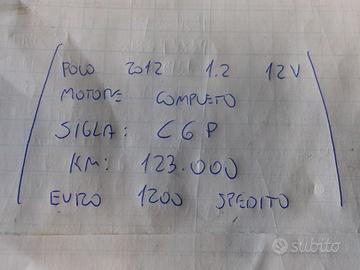 POLO 2012 1.2 12V
MOTORE COMPLETO
SIGLA: CGP
KM: 123.000
EURO 1200 SPEDITO
subito